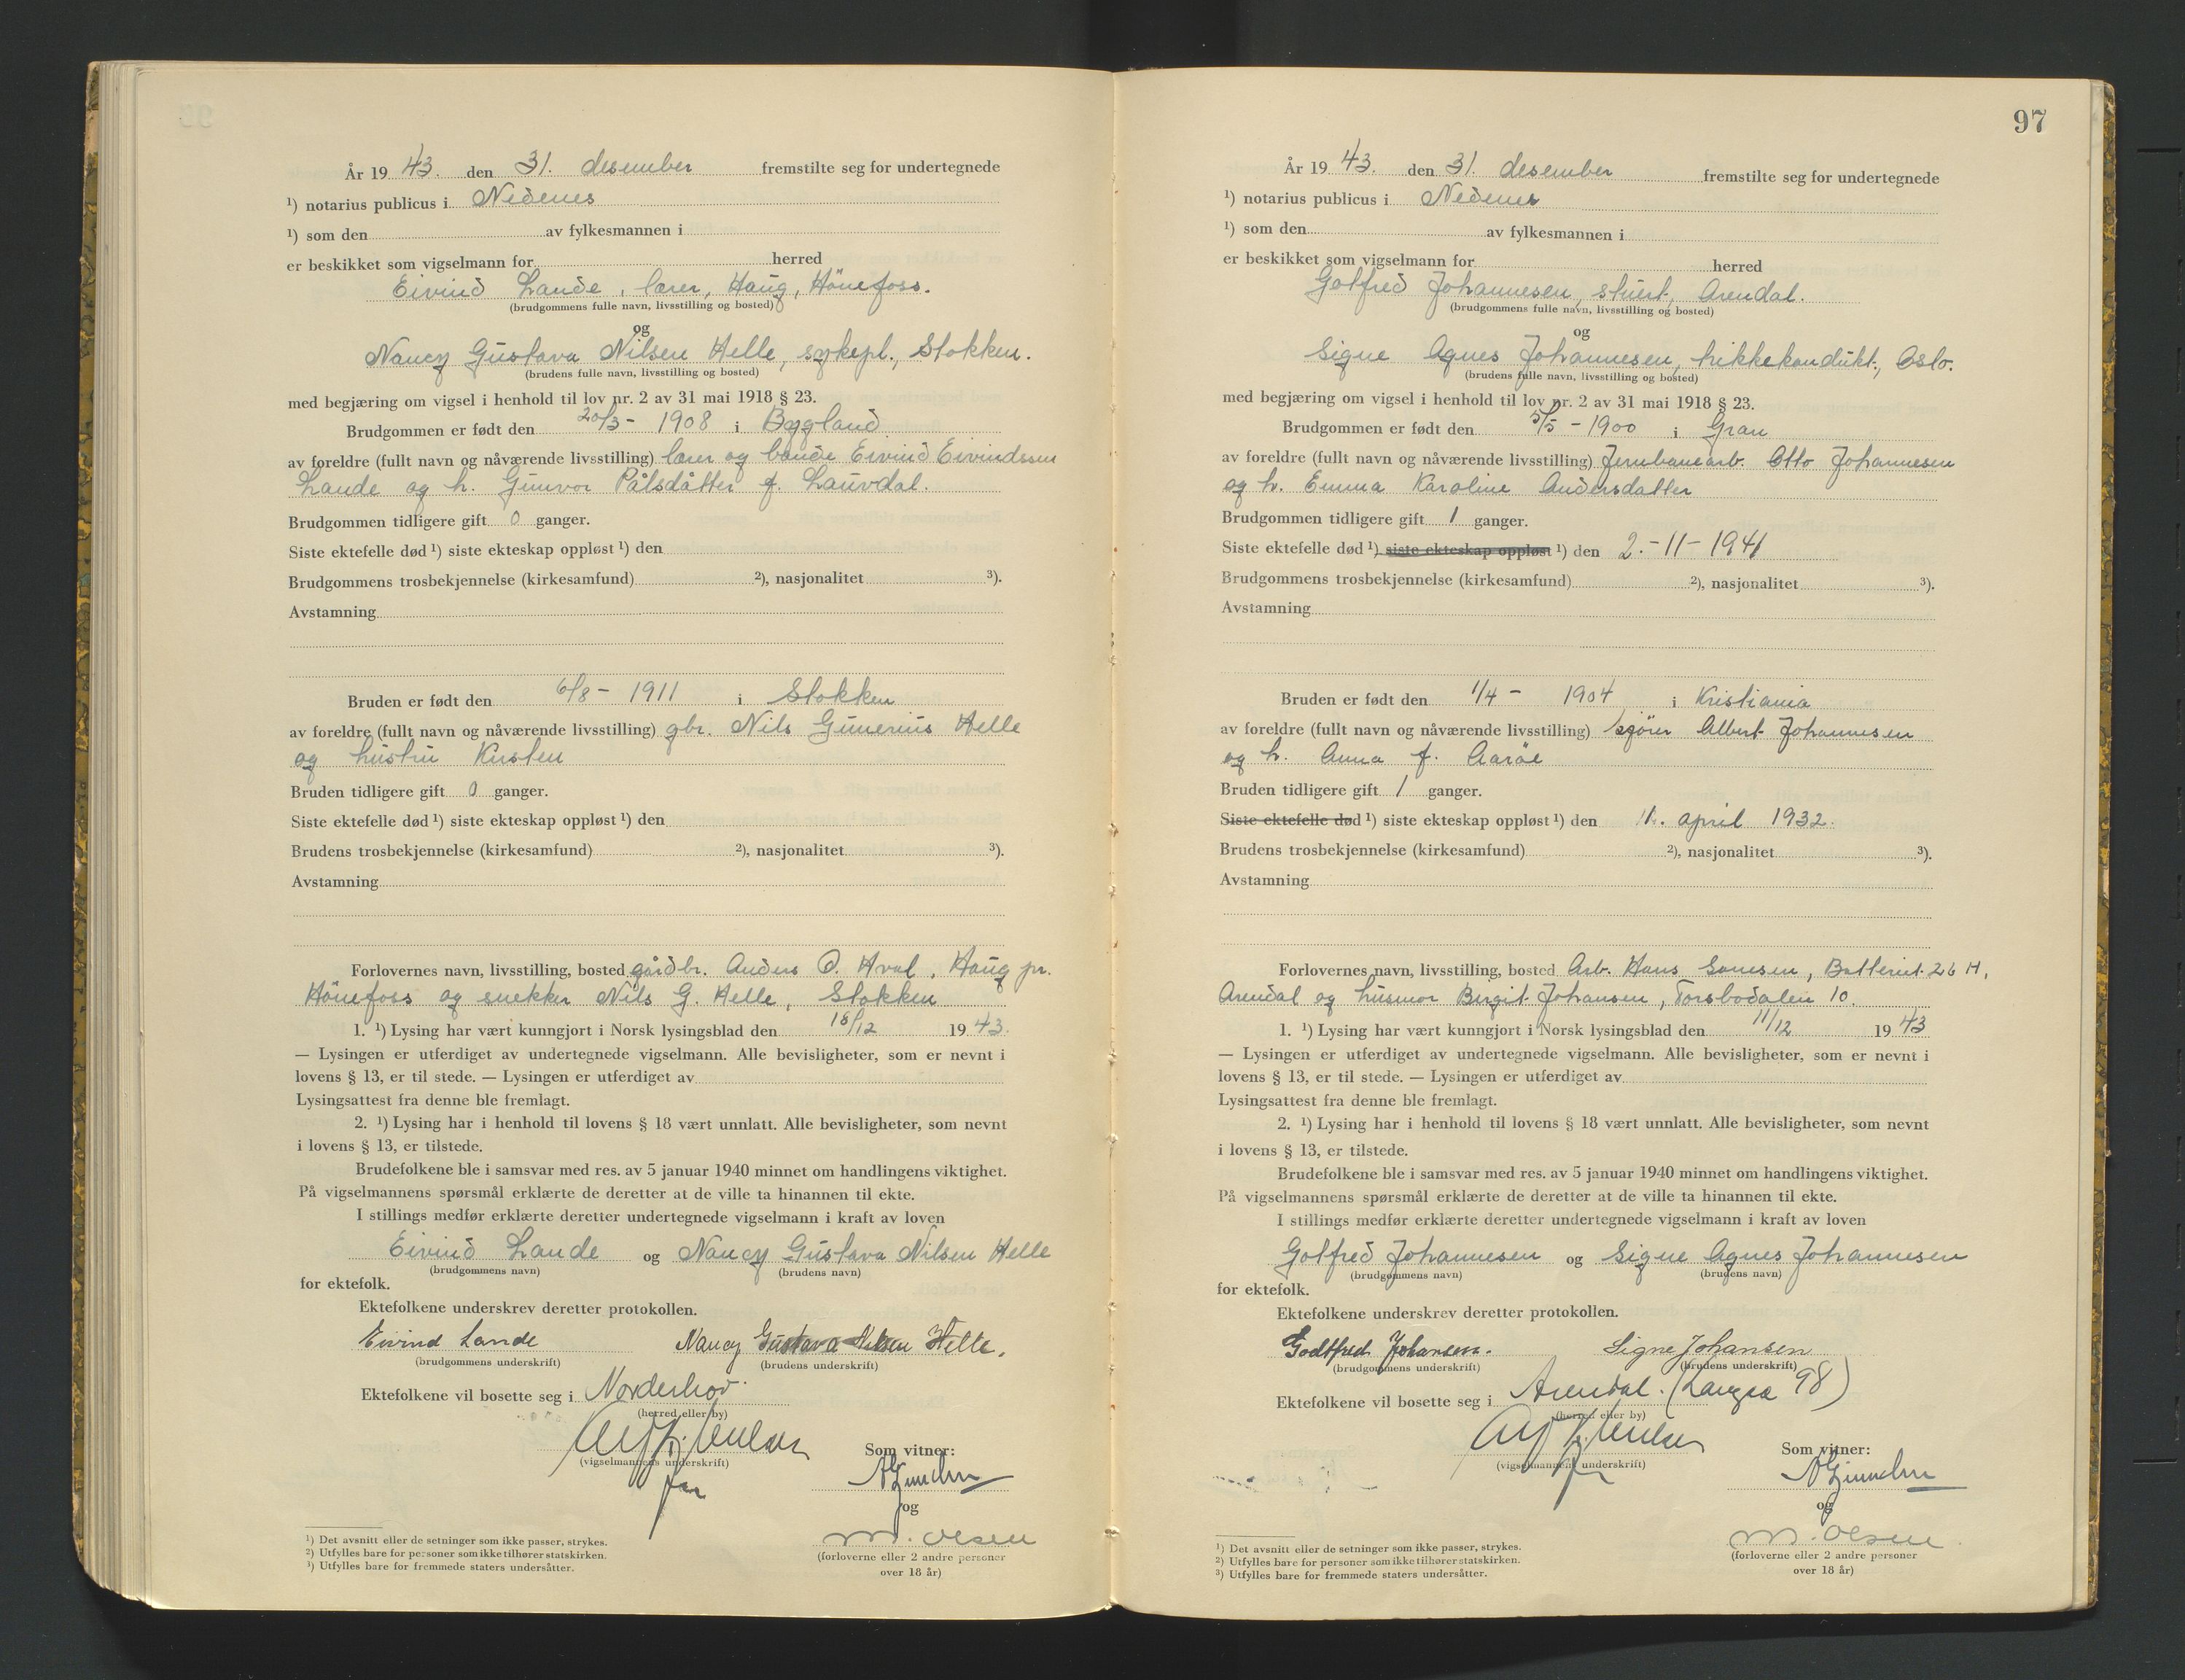 År 19 43. den 31. desember fremstilte seg for undertegnede
¹) notarius publicus i Nedenes
¹) som den av fylkesmannen i
er beskikket som vigselmann for herred
Eivind Lande, lærer, Haug, Hönefoss.
(brudgommens fulle navn, livsstilling og bosted)
og
Nancy Gustava Nilsen Helle, sykepl., Stokken.
(brudens fulle navn, livsstilling og bosted)
med begjæring om vigsel i henhold til lov nr. 2 av 31 mai 1918 § 23.
Brudgommen er født den 20/3 - 1908 i Bygland
av foreldre (fullt navn og nåværende livsstilling) lærer og bonde Eivind Eivindssen
Lande og h. Gunvor Pålsdåtter f. Lauvdal.
Brudgommen tidligere gift 0 ganger.
Siste ektefelle død ¹) siste ekteskap oppløst ¹) den
Brudgommens trosbekjennelse (kirkesamfund) ²), nasjonalitet ³).
Avstamning
Bruden er født den 6/8 - 1911 i Stokken
av foreldre (fullt navn og nåværende livsstilling) gbr. Nils Gunerius Helle
og hustru Kirsten
Bruden tidligere gift 0 ganger.
Siste ektefelle død ¹) siste ekteskap oppløst ¹) den
Brudens trosbekjennelse (kirkesamfund) ²), nasjonalitet ³).
Avstamning
Forlovernes navn, livsstilling, bosted gårdbr. Anders O. Hval, Haug pr.
Hönefoss og snekker Nils G. Helle, Stokken
1. ¹) Lysing har vært kunngjort i Norsk lysingsblad den 18/12 19 43.
— Lysingen er utferdiget av undertegnede vigselmann. Alle bevisligheter, som er nevnt i
lovens § 13, er til stede. — Lysingen er utferdiget av
Lysingsattest fra denne ble fremlagt.
2. ¹) Lysing har i henhold til lovens § 18 vært unnlatt. Alle bevisligheter, som nevnt
i lovens § 13, er tilstede.
Brudefolkene ble i samsvar med res. av 5 januar 1940 minnet om handlingens viktighet.
På vigselmannens spørsmål erklærte de deretter at de ville ta hinannen til ekte.
I stillings medfør erklærte deretter undertegnede vigselmann i kraft av loven
Eivind Lande og Nancy Gustava Nilsen Helle
(brudgommens navn) (brudens navn)
for ektefolk.
Ektefolkene underskrev deretter protokollen.
Eivind Lande Nancy Gustava Nilsen Helle.
(brudgommens underskrift) (brudens underskrift)
Ektefolkene vil bosette seg i Norderhov
(herred eller by)
(vigselmannens underskrift) Som vitner:
og
M. Olsen
(forloverne eller 2 andre personer
over 18 år)
¹) Det avsnitt eller de setninger som ikke passer, strykes.
²) Utfylles bare for personer som ikke tilhører statskirken.
³) Utfylles bare for fremmede staters undersåtter.
97
År 19 43. den 31. desember fremstilte seg for undertegnede
¹) notarius publicus i Nedenes
¹) som den av fylkesmannen i
er beskikket som vigselmann for herred
Gotfred Johannesen, stuert, Arendal.
(brudgommens fulle navn, livsstilling og bosted)
og
Signe Agnes Johannesen, trikkekondukt., Oslo.
(brudens fulle navn, livsstilling og bosted)
med begjæring om vigsel i henhold til lov nr. 2 av 31 mai 1918 § 23.
Brudgommen er født den 5/5 - 1900 i Gran
av foreldre (fullt navn og nåværende livsstilling) Jernbanearb. Otto Johannesen
og h. Emma Karoline Andersdatter
Brudgommen tidligere gift 1 ganger.
Siste ektefelle død ¹) siste ekteskap oppløst ¹) den 2.-11-1941
Brudgommens trosbekjennelse (kirkesamfund) ²), nasjonalitet ³).
Avstamning
Bruden er født den 1/4 - 1904 i Kristiania
av foreldre (fullt navn og nåværende livsstilling) kjører Albert Johannesen
og h. Anna f. Aaröe
Bruden tidligere gift 1 ganger.
Siste ektefelle død ¹) siste ekteskap oppløst ¹) den 11. april 1932.
Brudens trosbekjennelse (kirkesamfund) ²), nasjonalitet ³).
Avstamning
Forlovernes navn, livsstilling, bosted Arb. Hans Gonesen, Batteriet 26 H,
Arendal og husmor Birgit Johansen, Torsbodalen 10.
1. ¹) Lysing har vært kunngjort i Norsk lysingsblad den 11/12 19 43
— Lysingen er utferdiget av undertegnede vigselmann. Alle bevisligheter, som er nevnt i
lovens § 13, er til stede. — Lysingen er utferdiget av
Lysingsattest fra denne ble fremlagt.
2. ¹) Lysing har i henhold til lovens § 18 vært unnlatt. Alle bevisligheter, som nevnt
i lovens § 13, er tilstede.
Brudefolkene ble i samsvar med res. av 5 januar 1940 minnet om handlingens viktighet.
På vigselmannens spørsmål erklærte de deretter at de ville ta hinannen til ekte.
I stillings medfør erklærte deretter undertegnede vigselmann i kraft av loven
Gotfred Johannesen og Signe Agnes Johannesen
(brudgommens navn) (brudens navn)
for ektefolk.
Ektefolkene underskrev deretter protokollen.
Godtfred Johansen. Signe Johansen
(brudgommens underskrift) (brudens underskrift)
Ektefolkene vil bosette seg i Arendal. (Langsæ 98)
(herred eller by)
(vigselmannens underskrift) Som vitner:
og
M. Olsen
(forloverne eller 2 andre personer
over 18 år)
¹) Det avsnitt eller de setninger som ikke passer, strykes.
²) Utfylles bare for personer som ikke tilhører statskirken.
³) Utfylles bare for fremmede staters undersåtter.